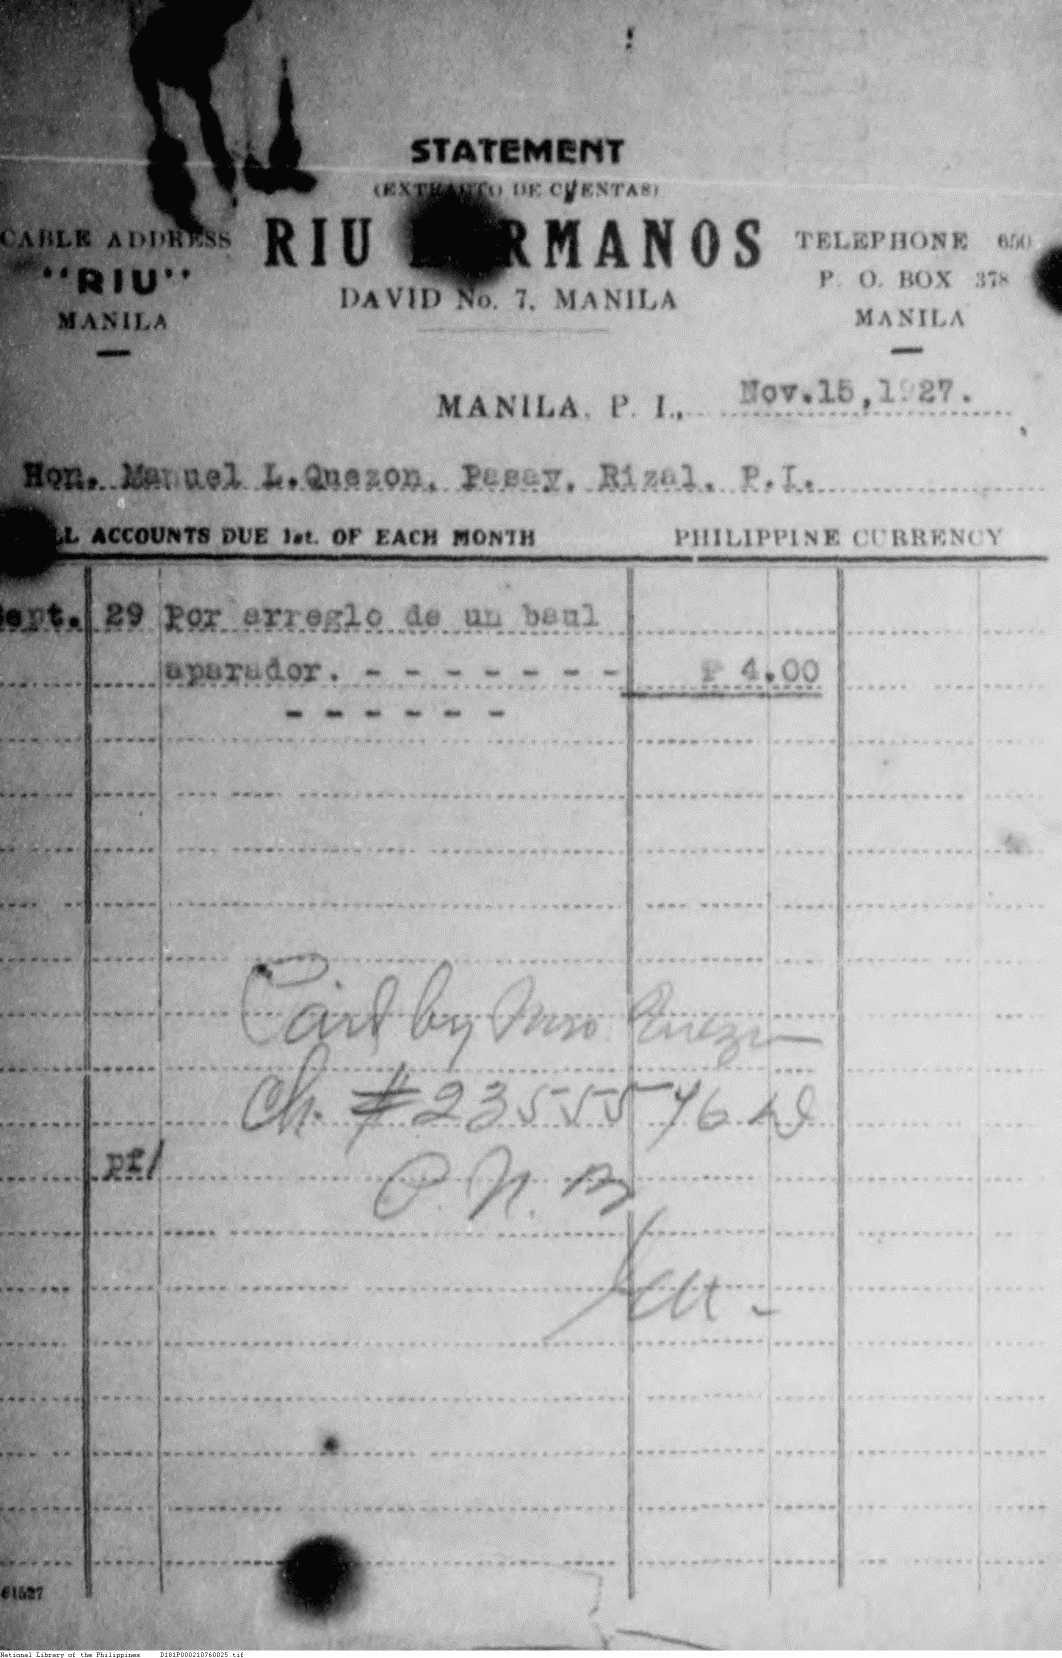 STATEMENT
(EXTRACTO DE CUENTAS)
RIU HERMANOS
DAVID No. 7, MANILA
CABLE ADDRESS
"RIU"
MANILA
TELEPHONE 650
P. O. BOX 378
MANILA
MANILA, P. I., Nov.15,1927.
Hon. Manuel L.Quezon, Pasay, Rizal, P.I.
ALL ACCOUNTS DUE 1st. OF EACH MONTH PHILIPPINE CURRENCY
Sept. 29 Por arreglo de un baul
aparador. - - - - - - - ₱ 4.00
- - - - - -
Paid by Mrs. Quezon
Ch. #23555
pf/
P. N. B
61527
National Library of the Philippines D181P000210760025.tif